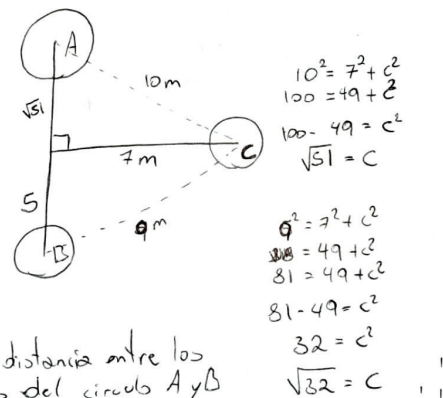 A
10m
√51
C
7m
5
9m
B
10² = 7² + c²
100 = 49 + c²
100 - 49 = c²
√51 = C
9² = 7² + c²
= 49 + c²
81 = 49 + c²
81 - 49 = c²
32 = c²
√32 = C
distancia entre los
del circulo A y B